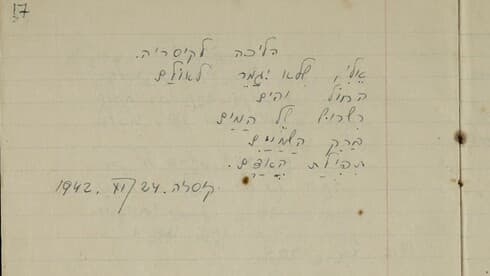 17
הליכה לקיסריה.
אֵלִי, שֶׁלֹּא יִגָּמֵר לְעוֹלָם
החול והים
רִשְׁרוּשׁ שֶׁל הַמַּיִם
בְּרַק הַשָּׁמַיִם
תְּפִילַת הָאָדָם.
קיסריה. 24/XI. 1942